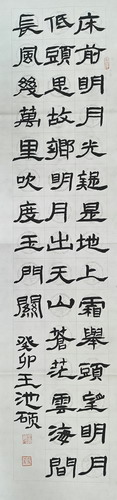 床前明月光疑是地上霜舉頭望明月
低頭思故鄉明月出天山蒼茫雲海間
長風幾萬里吹度玉門關
癸卯王池硕